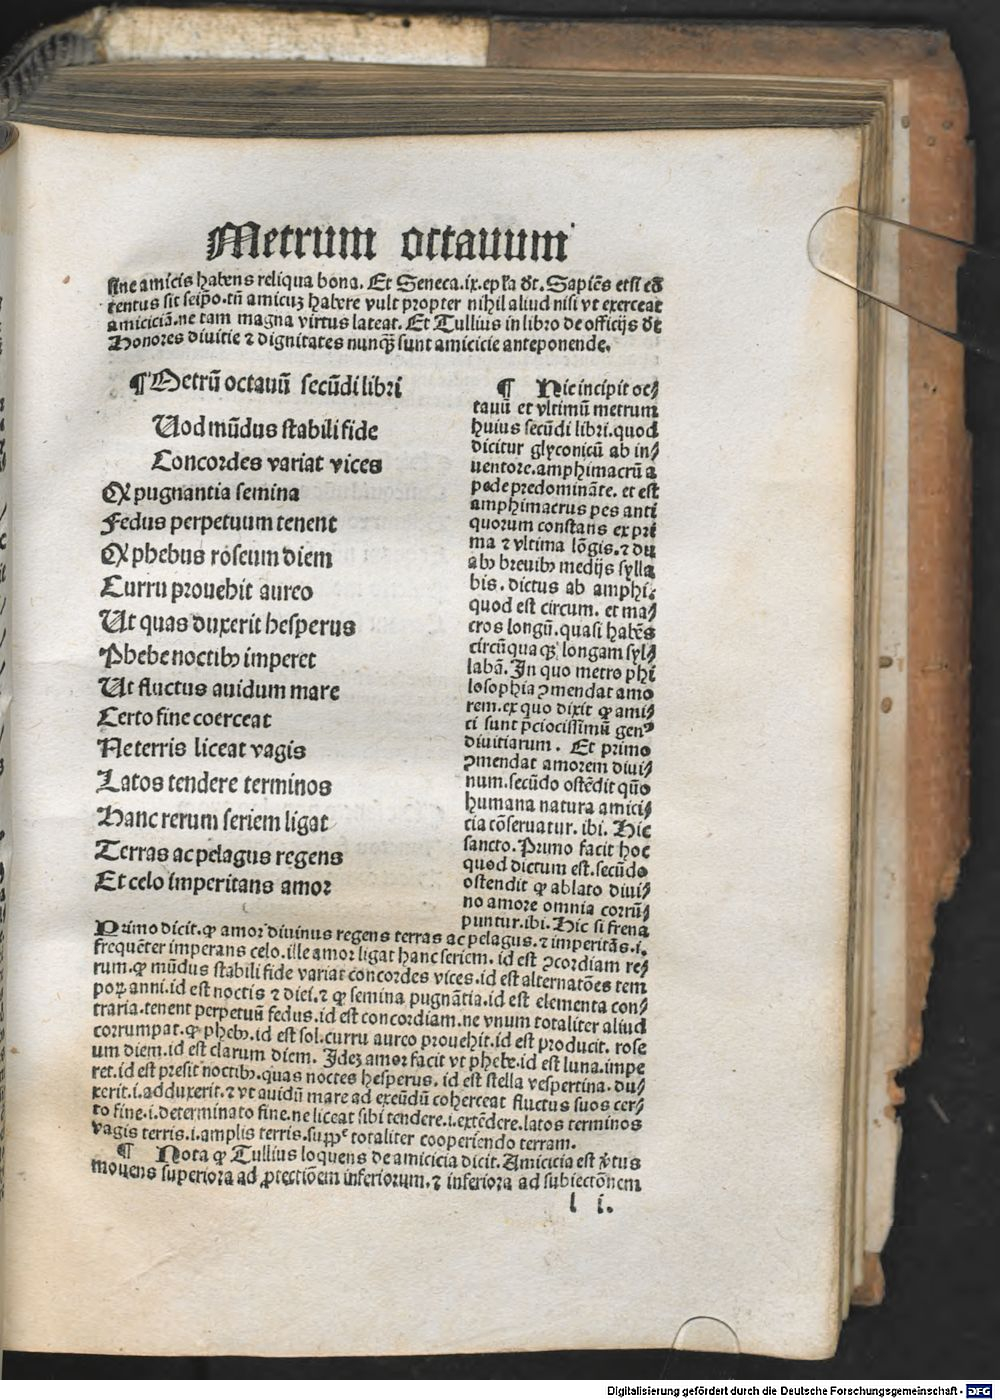 Metrum octauum
sine amicis habens reliqua bona. Et Seneca.ix.ep̄la dt. Sapiēs etsi cō
tentus sit seipo.tn̄ amicuꝫ habere vult propter nihil aliud nisi vt exerceat
amiciciā.ne tam magna virtus lateat. Et Tullius in libro de officijs dt
Honores diuitie ⁊ dignitates nunqꝫ sunt amicicie anteponende.
¶ Metrū octauū secūdi libri
Uod mūdus stabili fide
Concordes variat vices
Qꝫ pugnantia semina
Fedus perpetuum tenent
Qꝫ phebus roseum diem
Curru prouehit aureo
Ut quas duxerit hesperus
Phebe noctibꝫ imperet
Ut fluctus auidum mare
Certo fine coerceat
Ne terris liceat vagis
Latos tendere terminos
Hanc rerum seriem ligat
Terras ac pelagus regens
Et celo imperitans amor
¶ Hic incipit oc⸗
tauū et vltimū metrum
huius secūdi libri.quod
dicitur glyconicū ab in⸗
uentore.amphimacrū a
pede predomināte. et est
amphimacrus pes anti
quorum constans ex pri
ma ⁊ vltima lōgis.⁊ du
abꝫ breuibꝫ medijs sylla
bis. dictus ab amphi.
quod est circum. et ma⸗
cros longū.quasi habēs
circūquaqꝫ longam syl⸗
labā. In quo metro phi
losophia ꝯmendat amo
rem.ex quo dixit ꝙ ami⸗
ci sunt p̄ciocissimū genꝰ
diuitiarum. Et primo
ꝯmendat amorem diui⸗
num.secūdo ostēdit quō
humana natura amici⸗
cia cōseruatur. ibi. Hic
sancto. Primo facit hoc
quod dictum est.secūdo
ostendit ꝙ ablato diui⸗
no amore omnia corrū⸗
puntur.ibi. Hic si frena
Primo dicit.ꝙ amor diuinus regens terras ac pelagus.⁊ imperitās.i.
frequēter imperans celo.ille amor ligat hanc seriem. id est ꝯcordiam re⸗
rum.ꝙ mūdus stabili fide variat concordes vices.id est alternatōes tem
poꝝ anni.id est noctis ⁊ diei.⁊ ꝙ semina pugnātia.id est elementa con⸗
traria.tenent perpetuū fedus.id est concordiam.ne vnum totaliter aliud
corrumpat.ꝙ phebꝫ.id est sol.curru aureo prouehit.id est producit. rose
um diem.id est clarum diem. Ideꝫ amor facit vt phebe.id est luna.impe
ret.id est presit noctibꝫ.quas noctes hesperus. id est stella vespertina. du⸗
xerit.i.adduxerit.⁊ vt auidū mare ad exeūdū coherceat fluctus suos cer⸗
to fine.i.determinato fine.ne liceat sibi tendere.i.extēdere.latos terminos
vagis terris.i.amplis terris.supple totaliter cooperiendo terram.
¶ Nota ꝙ Tullius loquens de amicicia dicit. Amicicia est v̄tus
mouens superiora ad ꝓtectiōem inferiorum.⁊ inferiora ad subiectōnem
l i.
Digitalisierung gefördert durch die Deutsche Forschungsgemeinschaft - DFG